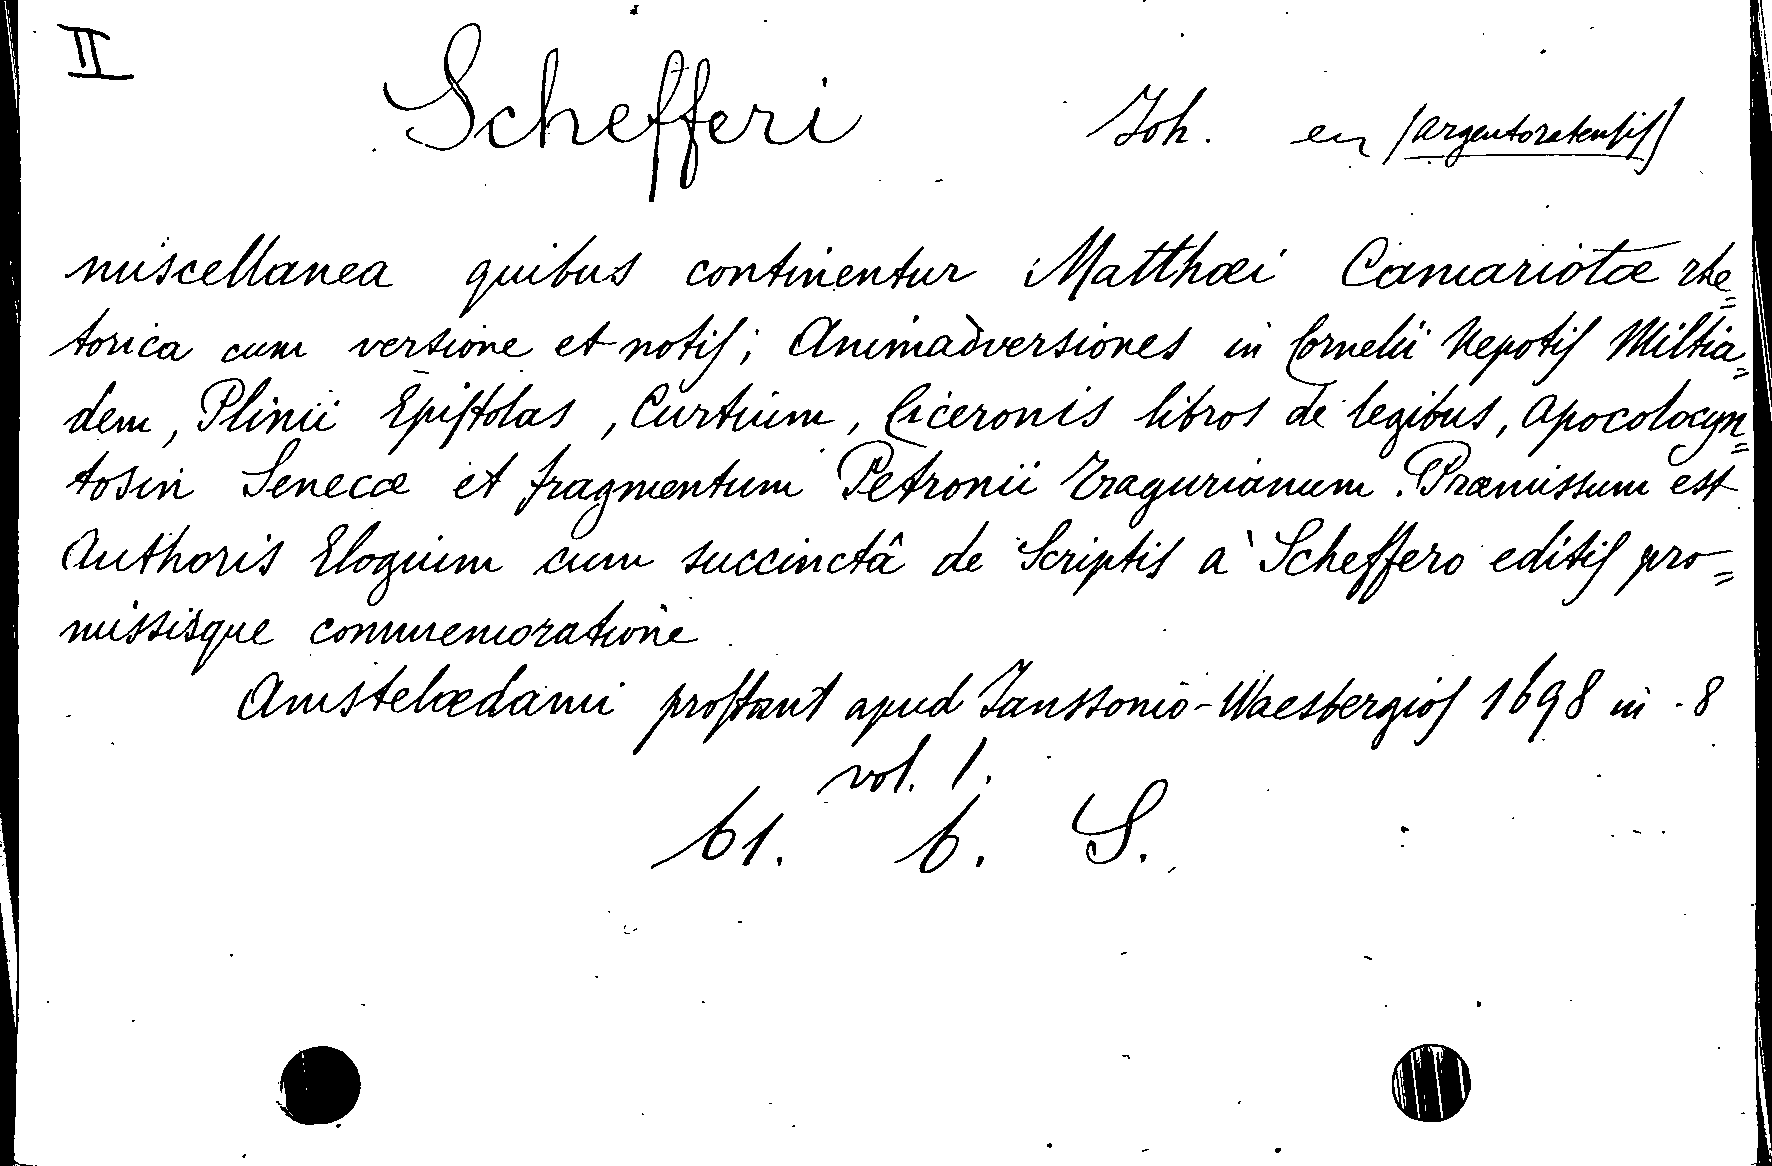 II
Schefferi Joh. en (argentoratensis)
miscellanea quibus continentur Matthæi Camariotæ rhe=
torica cum versione et notis; Animadversiones in Cornelii Nepotis Miltia=
dem, Plinii Epistolas, Curtium, Ciceronis libros de legibus, Apocolocyn=
tosin Senecæ et fragmentum Petronii Tragurianum. Præmissum est
Authoris Eloguim cum succinctâ de Scriptis à Scheffero editis pro=
missisque commemoratione
Amstelædami prostant apud Janssonio-Waesbergios 1698 in -8
vol. 1.
61. 6. S.